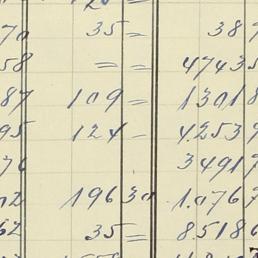 70 35 = 389
58 = = 47435
87 109 = 13018
95 124 - 42539
76 34917
02 196 30 1.0767
62 35 = 85186